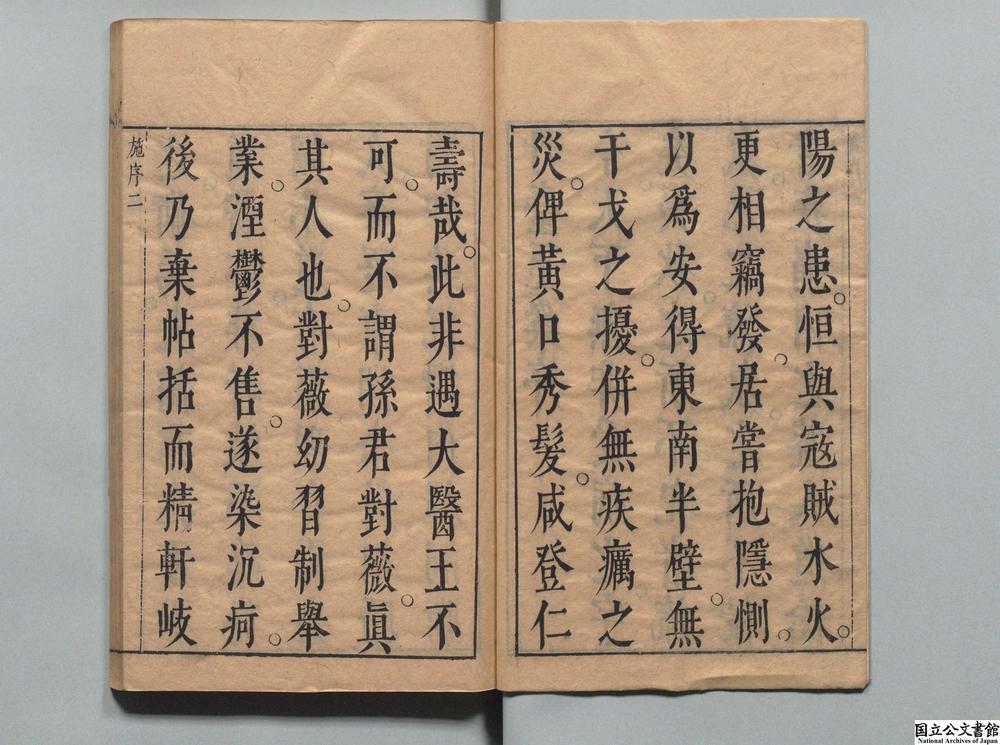 陽之患。恒與寇賊水火。
更相竊發。居嘗抱隱惻。
以爲安得東南半壁。無
干戈之擾。併無疾癘之
災。俾黃口秀髮。咸登仁
壽哉。此非遇大醫王不
可。而不謂孫君對薇。眞
其人也。對薇幼習制舉
業。湮鬱不售。遂染沉疴。
後乃棄帖括而精軒岐
施序 二
国立公文書館
National Archives of Japan